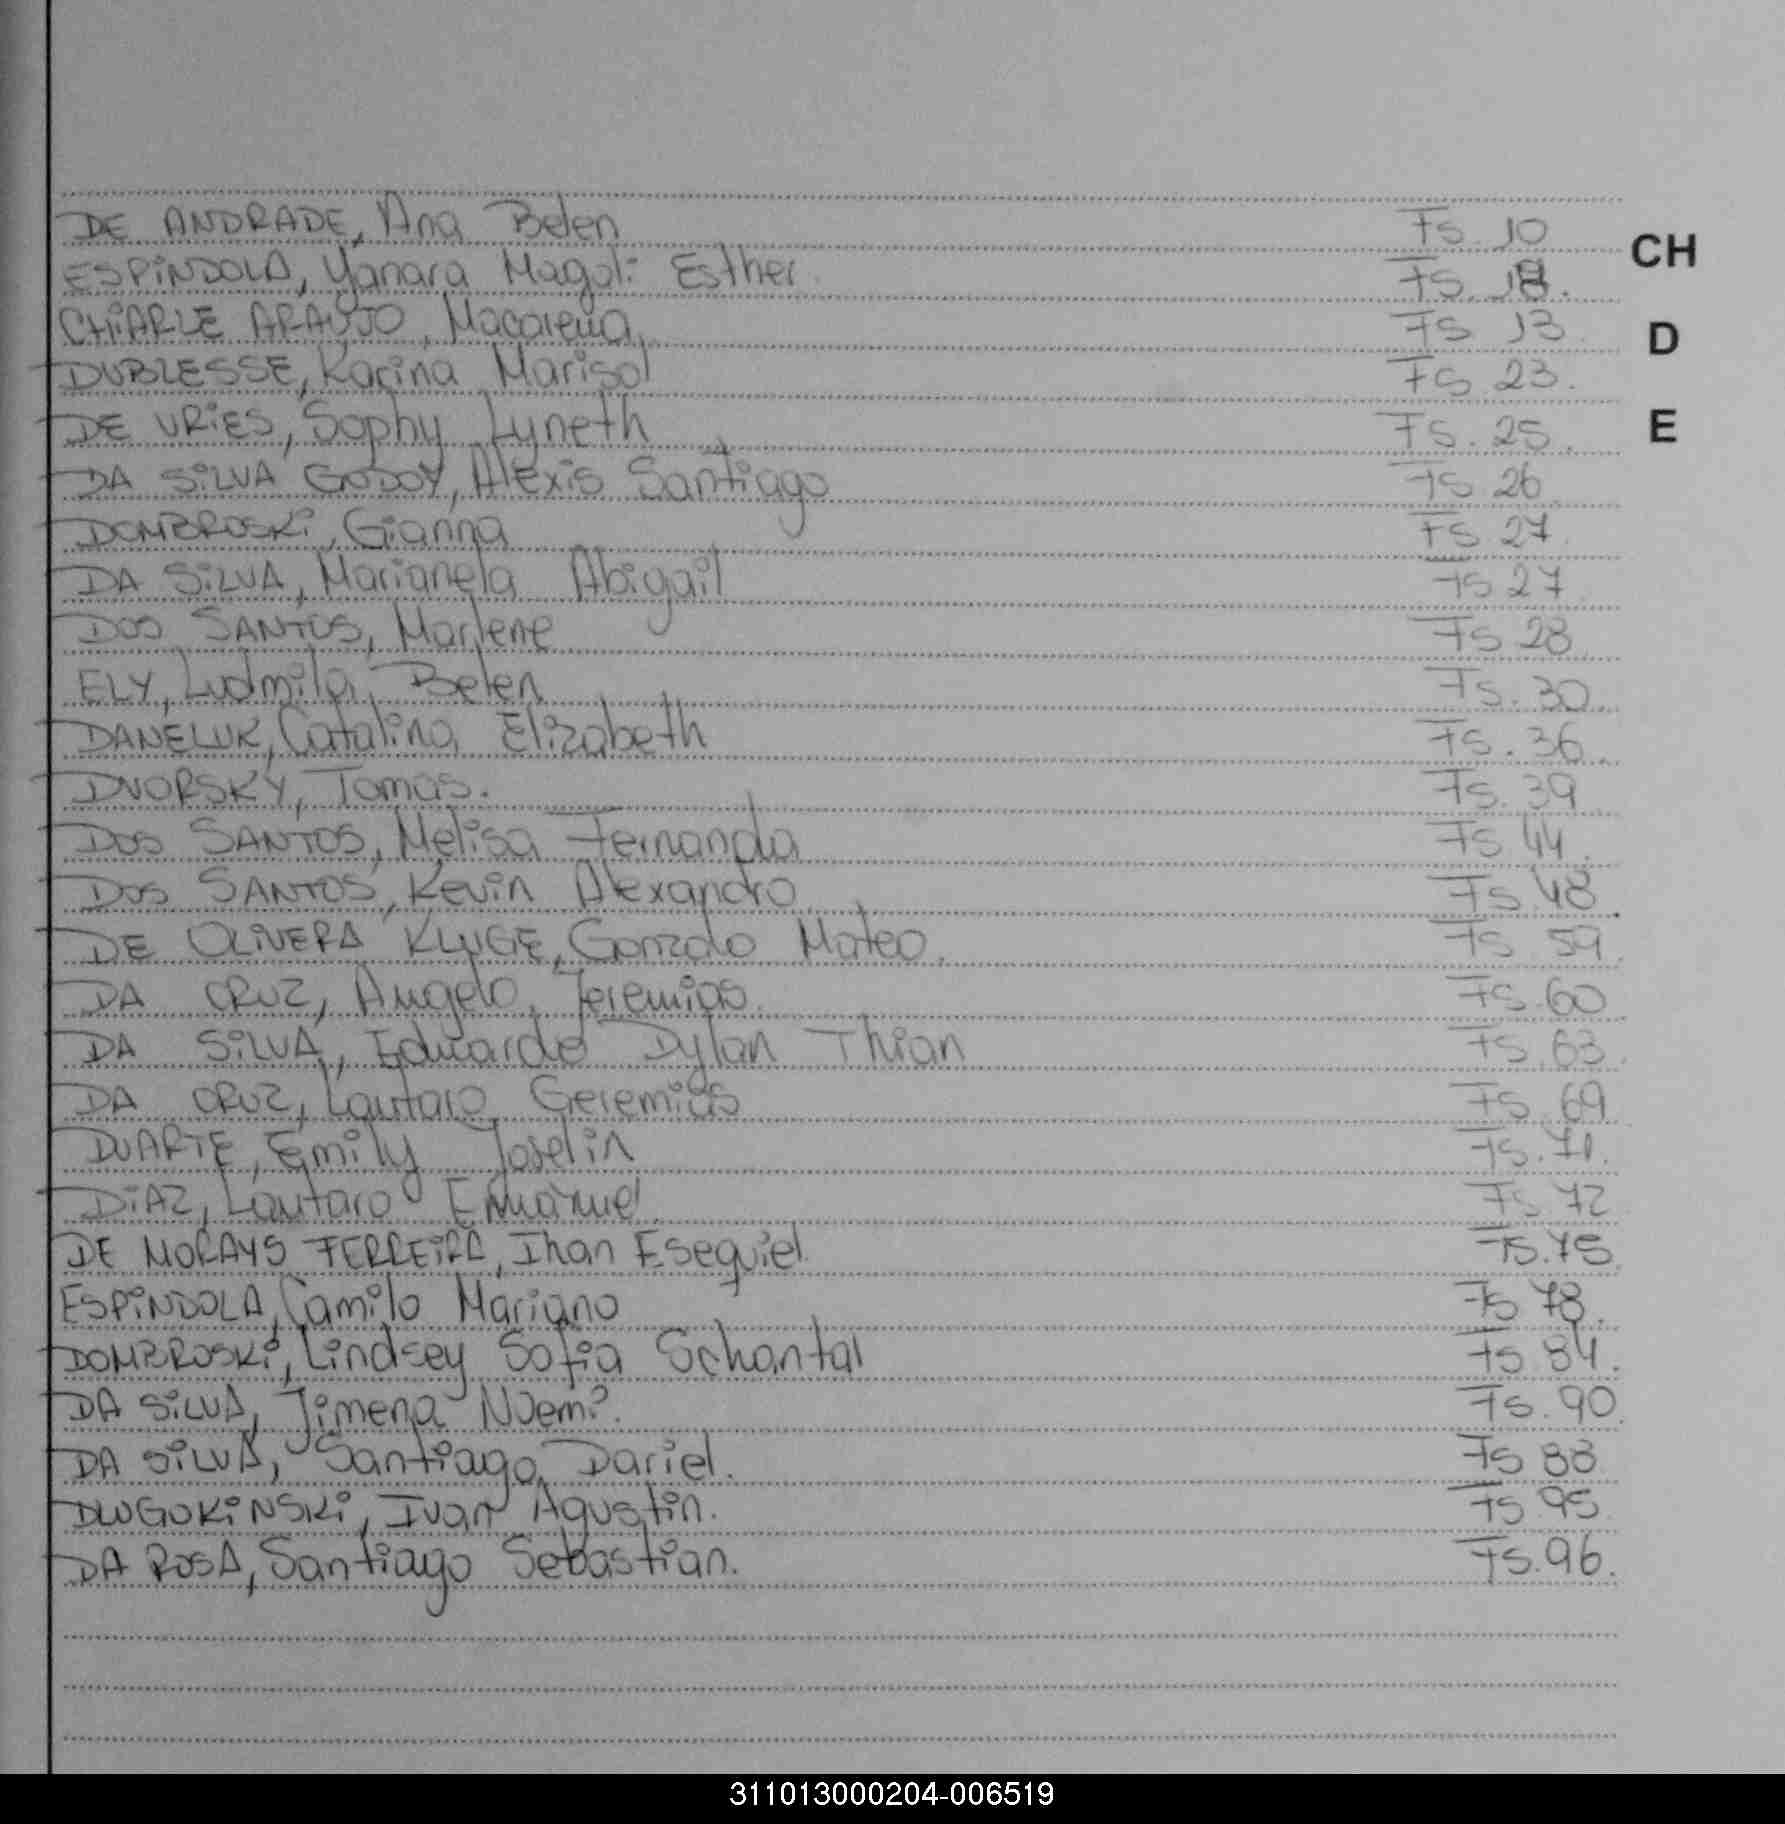 DE ANDRADE, Ana Belen Fs. 10
CH
ESPiNDOLA, Yanara Magali Esther. Fs. 18.
CHiARLE ARAUJO, Macarena. Fs. 13.
D
DUBLESSE, Karina Marisol Fs. 23.
DE VRiES, Sophy Lyneth Fs. 25.
E
DA SiLVA GODOY, Alexis Santiago Fs. 26.
DOMBROSKi, Gianna Fs 27.
DA SiLVA, Marianela Abigail Fs 27.
DOS SANTOS, Marlene Fs 28.
ELY, Ludmila Belen Fs. 30.
DANELUK, Catalina Elizabeth Fs. 36.
DVORSKY, Tomas. Fs. 39.
DOS SANTOS, Melisa Fernanda Fs 44.
DOS SANTOS, Kevin Alexandro Fs 48.
DE OLiVERA KLUGE, Gonzalo Mateo. Fs 59.
DA CRUZ, Angelo Jeremias. Fs. 60
DA SiLVA, Eduardo Dylan Thian Fs. 63.
DA CRUZ, Lautaro Geremias Fs. 69.
DUARTE, Emily Joselin Fs. 71.
DiAZ, Lautaro Emanuel Fs 72
DE MORAYS FERREiRA, Ihan Esequiel. Fs. 75.
ESPiNDOLA, Camilo Mariano Fs 78.
DOMBROSKi, Lindsey Sofia Schantal Fs 84.
DA SiLVA, Jimena Noemi. Fs. 90.
DA SiLVA, Santiago Dariel. Fs 88.
DLUGOKiNSKi, Ivan Agustin. Fs 95.
DA ROSA, Santiago Sebastian. Fs. 96.
311013000204-006519